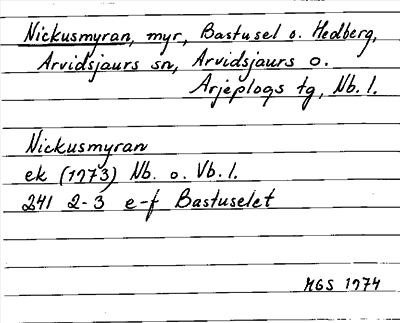 Nickusmyran, myr, Bastusel o. Hedberg,
Arvidsjaurs sn, Arvidsjaurs o.
Arjeplogs tg, Nb. l.
Nickusmyran
ek (1973) Nb. o. Vb. l.
241 2-3 e-f Bastuselet
MGS 1974